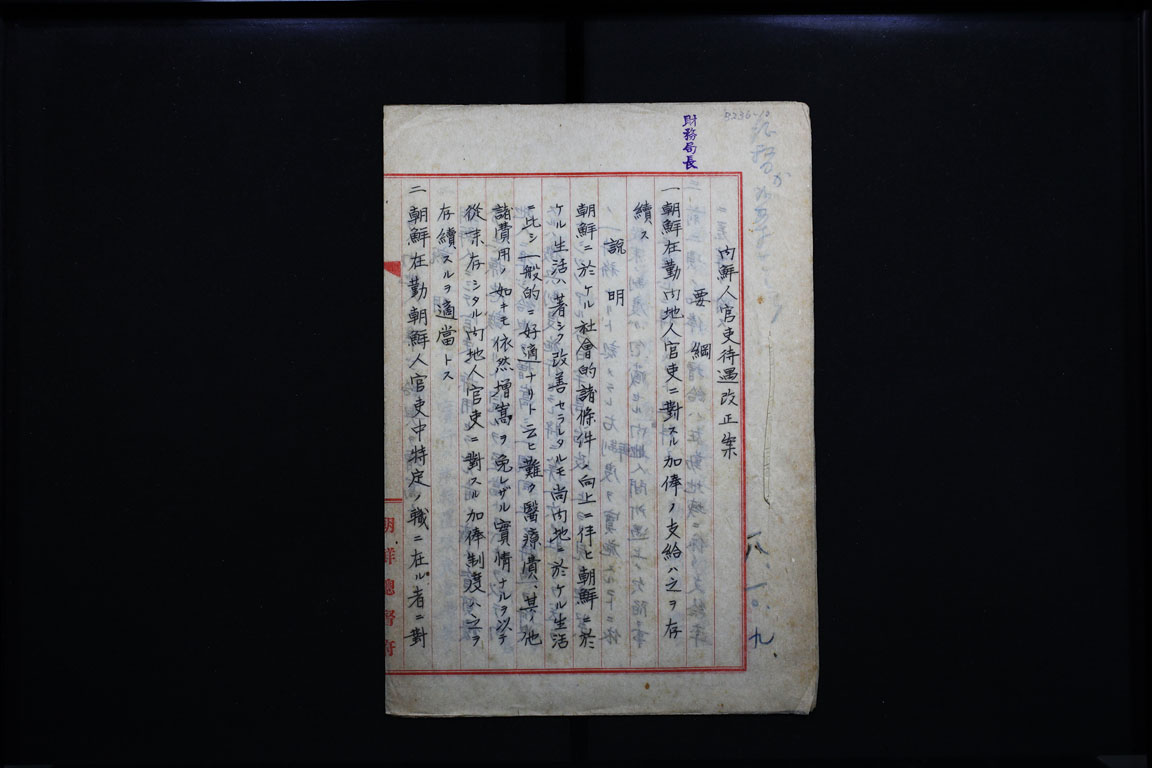 財務局長
一八、一〇、九
内鮮人官吏待遇改正案
要綱
一 朝鮮在勤内地人官吏ニ對スル加俸ノ支給ハ之ヲ存
續ス
說明
朝鮮ニ於ケル社會的諸條件ノ向上ニ伴ヒ朝鮮ニ於
ケル生活ハ著シク改善セラレタルモ尚内地ニ於ケル生活
ニ比シ一般的ニ好適ナリト云ヒ難ク醫療費、其ノ他
諸費用ノ如キモ依然增嵩ヲ免レザル實情ナルヲ以テ
從来存シタル内地人官吏ニ對スル加俸制度ハ之ヲ
存續スルヲ適當トス
二 朝鮮在勤朝鮮人官吏中特定ノ職ニ在ル者ニ對
朝鮮總督府